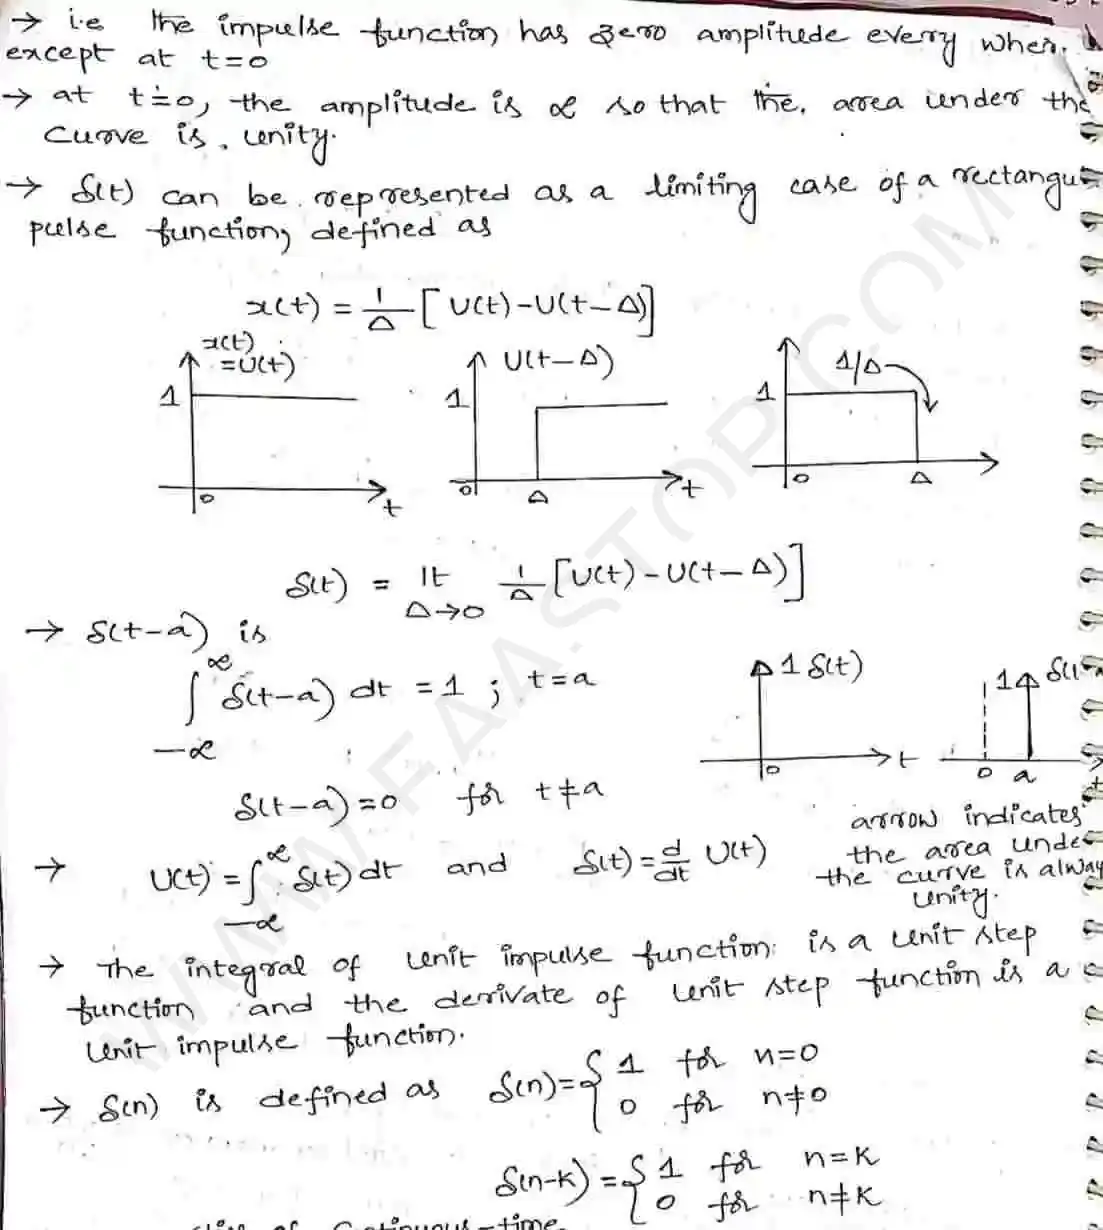 → i.e the impulse function has zero amplitude every wher
except at t=0
→ at t=0, the amplitude is ∝ so that the, area under the
curve is unity.
→ δ(t) can be represented as a limiting case of a rectangu
pulse function, defined as
x(t) = 1/Δ [U(t)-U(t-Δ)]
x(t)
=U(t)
1
0
t
U(t-Δ)
1
0
Δ
t
1/Δ
1
0
Δ
δ(t) = lt Δ→0 1/Δ [U(t)-U(t-Δ)]
→ δ(t-a) is
∫_{-∝}^{∝} δ(t-a) dt = 1 ; t=a
1 δ(t)
0
t
1
0
a
t
δ(t-a)=0 for t≠a
arrow indicates
the area unde
the curve is alway
unity.
→ U(t) = ∫_{-∝}^{∝} δ(t) dt and δ(t) = d/dt U(t)
→ The integral of unit impulse function is a unit step
function and the derivate of unit step function is a
unit impulse function.
→ δ(n) is defined as δ(n) = { 1 for n=0
0 for n≠0
δ(n-k) = { 1 for n=k
0 for n≠k
of continuous-time
WWW.FAASTOP.COM